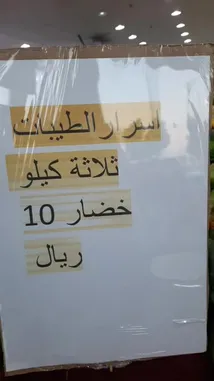 اسرار الطيبات
ثلاثة كيلو
خضار 10
ريال